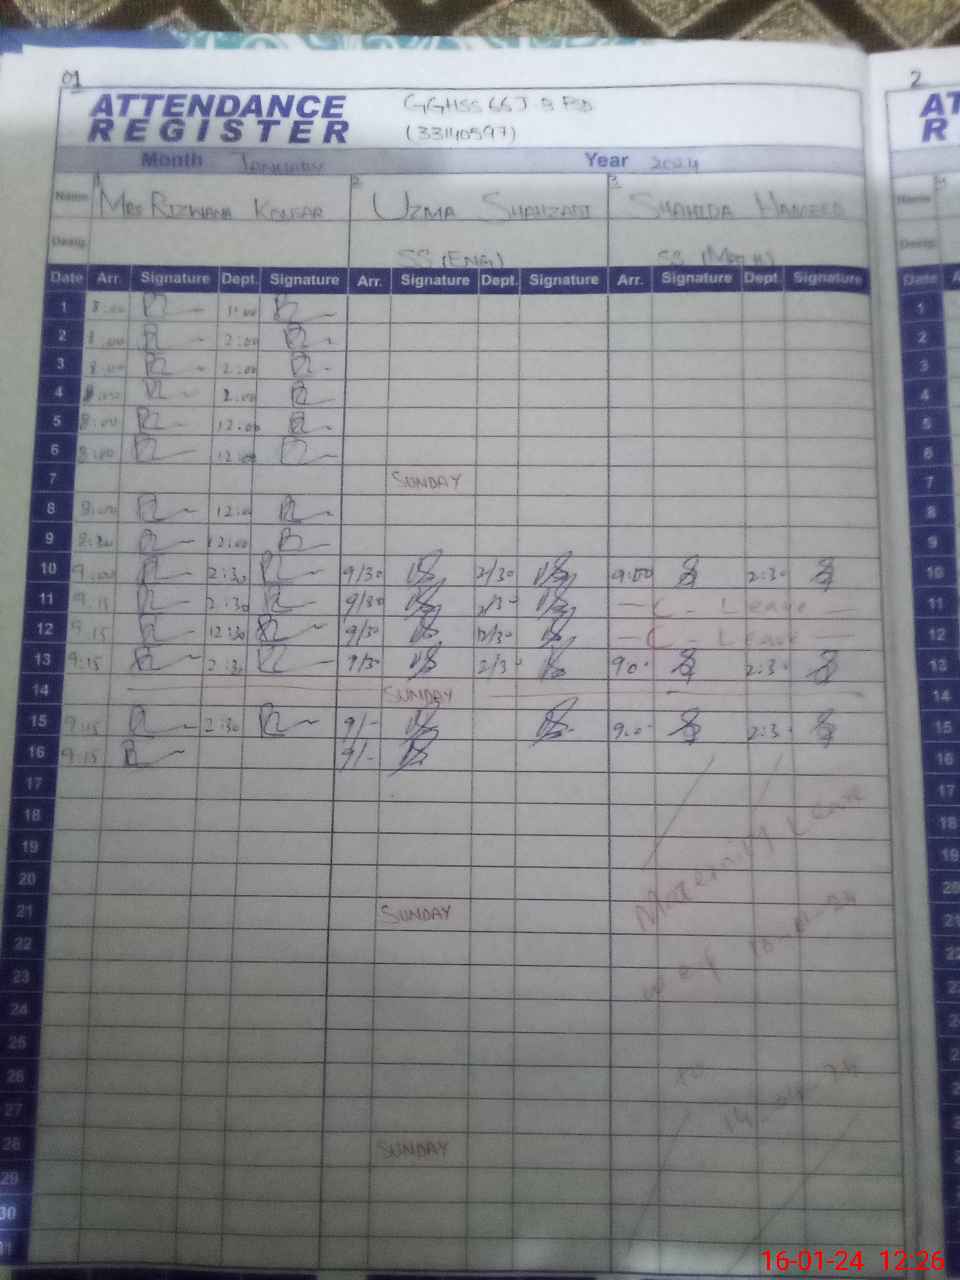 01
2
ATTENDANCE
REGISTER
GGHSS 66 J.B FSD
(33140597)
AT
R
Month January Year 2024
Name 1 Mrs Rizwana Kousar 2 Uzma Shahzadi 3 Shahida Hameed Name
Desig. SS (Eng) Desig.
Date Arr. Signature Dept. Signature Arr. Signature Dept. Signature Arr. Signature Dept. Signature Date A
1 8:00 1
2 8:00 2:00 2
3 8:00 2:00 3
4 8:00 2:00 4
5 8:00 12:00 5
6 8:00 12:00 6
7 SUNDAY 7
8 8:00 12:00 8
9 8:30 12:00 9
10 9:00 2:30 9/30 2/30 9:00 2:30 10
11 9:15 2:30 9/30 2/30 - C - Leave 11
12 9:15 12:30 9/30 12/30 - C - Leave 12
13 9:15 2:30 9/30 2/30 9.0 2:30 13
14 SUNDAY 14
15 9:15 2:30 9/- 9.0 2:3 15
16 9:15 9/- 16
17 17
18 18
19 19
20 20
21 SUNDAY 21
22 22
23 23
24 24
25 25
26 2
27 2
28 SUNDAY
29
30
31
Maternity Leave
w.e.f
to
16-01-24 12:26